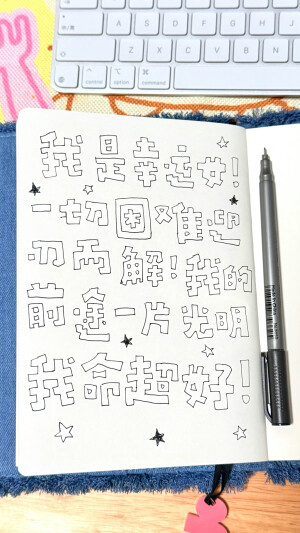 Z X C V B N M
control option command
我是幸运女!
一切困难迎
刃而解!我的
前途一片光明
我命超好!